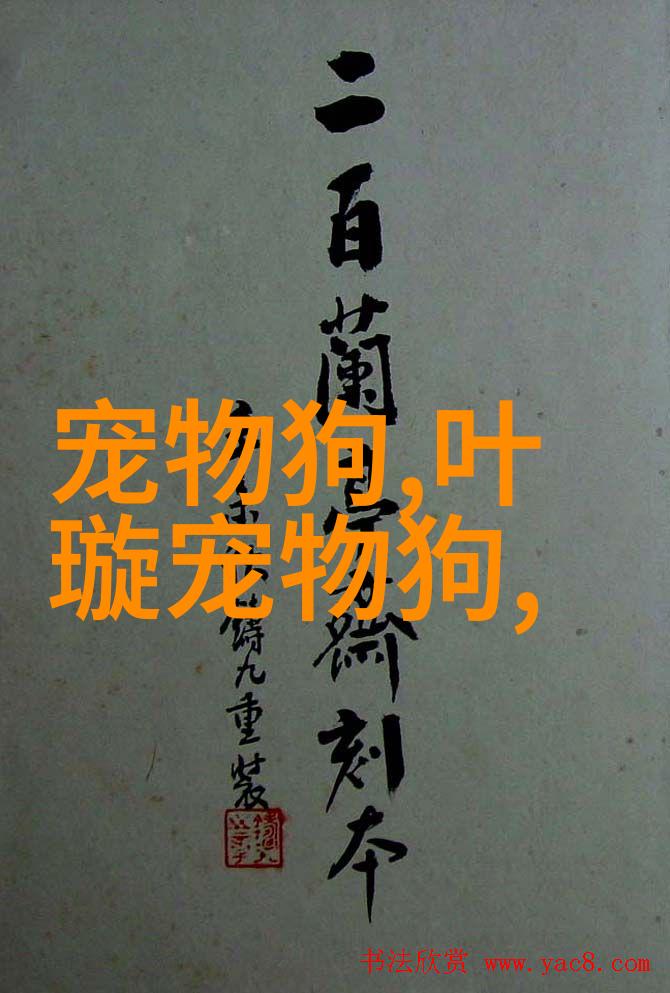 二百蘭亭齋刻本
九重裝
宠物狗,叶
璇宠物狗,
书法欣赏 www.yac8.com